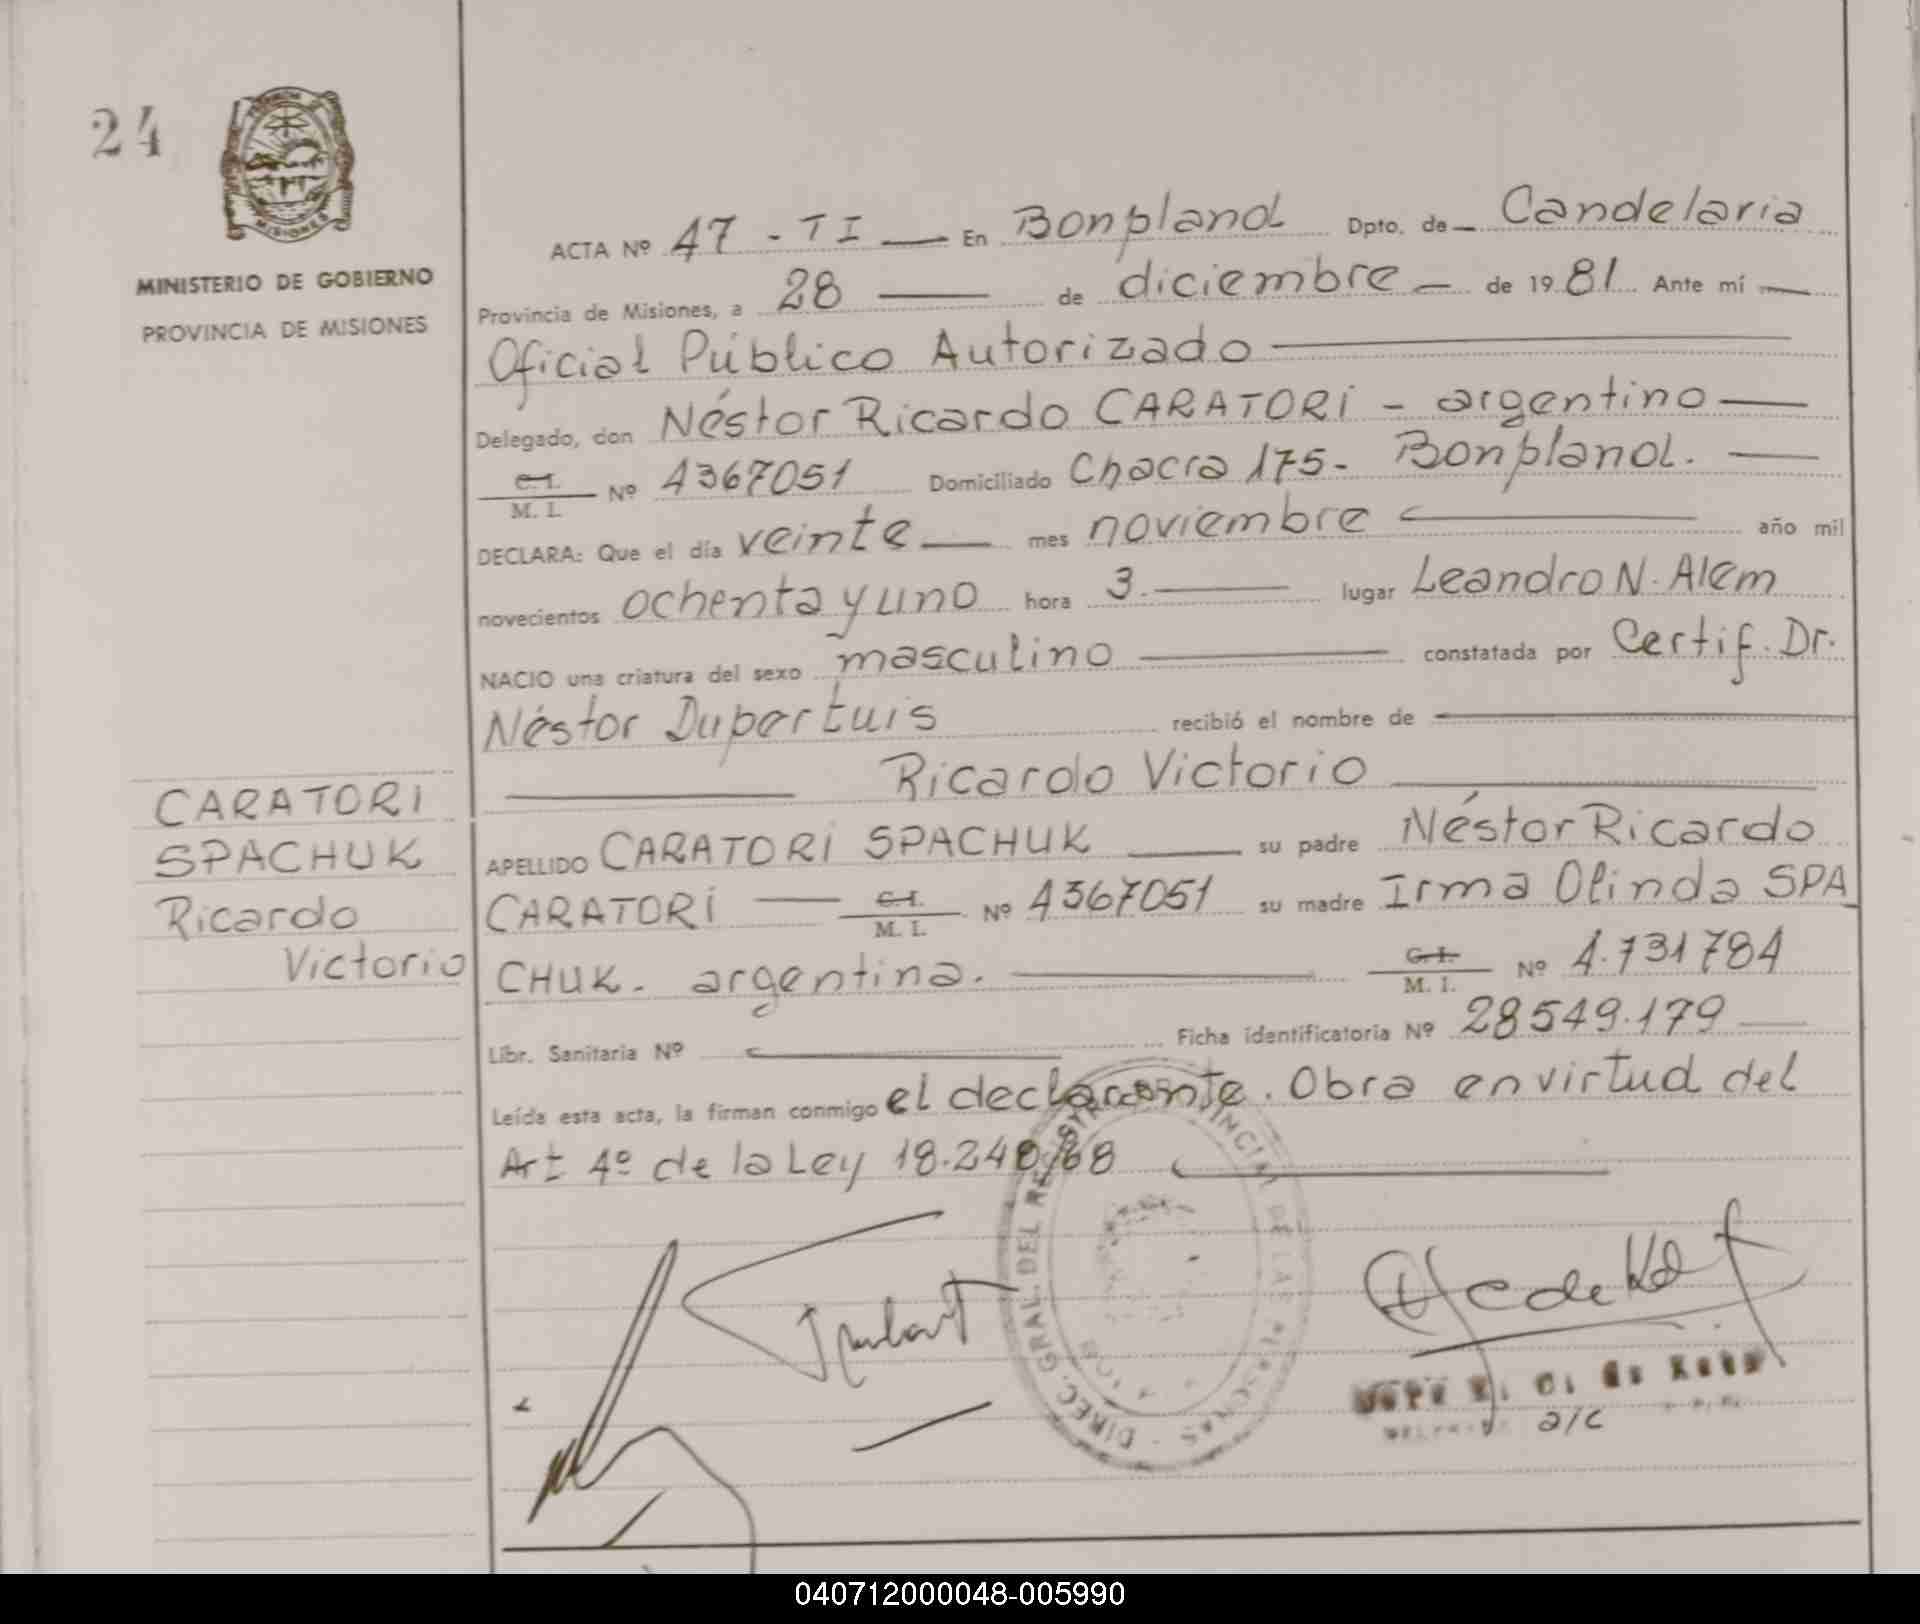 24
MISIONES
MINISTERIO DE GOBIERNO
PROVINCIA DE MISIONES
ACTA Nº 47 - TI — En Bonpland Dpto. de — Candelaria
Provincia de Misiones, a 28 — de diciembre — de 1981 Ante mí —
Oficial Público Autorizado —
Delegado, don Néstor Ricardo CARATORI - argentino —
C.I. / M. I. Nº 4367051 Domiciliado Chacra 175- Bonpland. —
DECLARA: Que el día veinte — mes noviembre — año mil
novecientos ochenta y uno hora 3. — lugar Leandro N. Alem
NACIO una criatura del sexo masculino — constatada por Certif. Dr.
Néstor Dupertuis recibió el nombre de —
— Ricardo Victorio —
APELLIDO CARATORI SPACHUK — su padre Néstor Ricardo
CARATORI — C.I. / M. I. Nº 4367051 su madre Irma Olinda SPA
CHUK. argentina. — C.I. / M. I. Nº 4.731784
Libr. Sanitaria Nº — Ficha identificatoria Nº 28549.179 —
Leída esta acta, la firman conmigo el declarante. Obra en virtud del
Art 4º de la Ley 18.248/68 —
CARATORI
SPACHUK
Ricardo
Victorio
DIREC. GRAL. DEL DE LAS PERSONAS
a/c
040712000048-005990